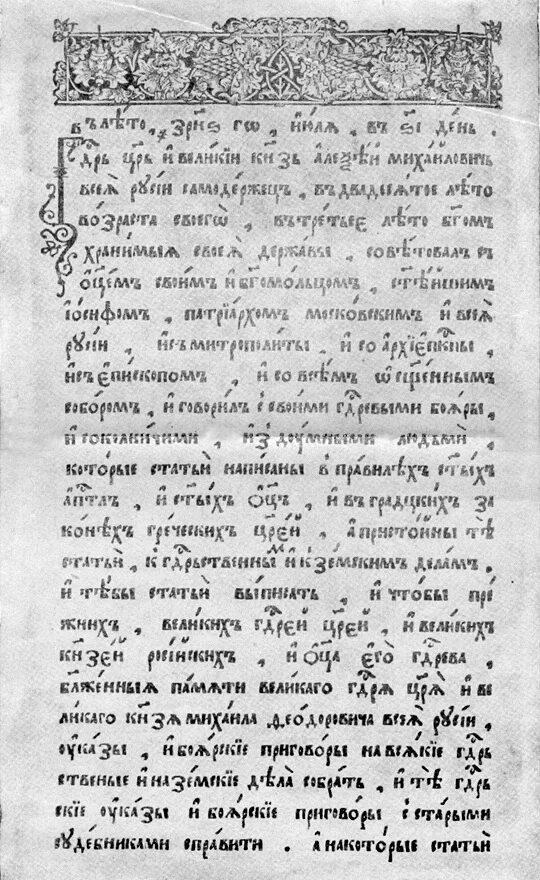 въ лѣ́то, ҂зрн҃ѕ гѡ, і҆ю́лѧ, въ ѕ҃і де́нь.
Гд҃рь цр҃ь и҆ вели́кїи кн҃зь а҆ леѯѣ́й миха́йловичь
всеѧ̀ рꙋсі́и самоде́ржецъ, въ двадесѧ́тое лѣ́то
во́зраста своегѡ̀, въ тре́тьеє лѣ́то бг҃омъ
храни́мыѧ своеѧ̀ держа́вы, совѣ́товалъ съ
ѻ҆ц҃е́мъ свои́мъ и҆ бг҃омо́льцомъ, ст҃ѣ́йшимъ
іѡ́сифомъ, патрїа́рхомъ моско́вскимъ и҆ всеѧ̀
рꙋсі́и, и҆ съ митрополи́ты, и҆ со а҆рхїєпкⷭ҇пы,
и҆ съ є҆пи́скопомъ, и҆ со всѣ́мъ ѡ҆сщ҃е́ннымъ
собо́ромъ, и҆ говори́лъ с свои́ми гдⷭ҇ревыми боѧ́ры,
и҆ соко́лничими, и҆ з дꙋ́мными людьмѝ,
кото́рые статьѝ напи́саны в пра́вилѣхъ ст҃ы́хъ
а҆пⷭ҇тлъ, и҆ ст҃ы́хъ ѻ҆ц҃ъ, и҆ въ гра́дцкихъ за
ко́нѣхъ гре́ческихъ цр҃е́й, а҆ присто́йны тѣ̀
статьѝ, к гдⷭ҇рьственнымъ и҆ к зе́мскимъ дела́мъ.
и҆ тѣ́бы статьѝ вы́писать, и҆ что́бы пре́
жнихъ, вели́кихъ гдⷭ҇ре́й цр҃е́й, и҆ вели́кихъ
кн҃зе́й росі́йскихъ, и҆ ѻ҆ц҃а̀ є҆гѡ̀ гдⷭ҇рева,
блаже́нныѧ па́мѧти вели́каго гдⷭ҇рѧ цр҃ѧ̀ и҆ ве
ли́каго кн҃зѧ миха́ила ѳео́доровича всеѧ̀ рꙋсі́и,
ᲂу҆ка́зы, и҆ боѧ́рские пригово́ры на всѧ́кїе гдⷭ҇рь
ственые и҆ на зе́мскїе дѣла̀ собра́ть, и҆ тѣ̀ гдⷭ҇рь
скїе ᲂу҆ка́зы и҆ боѧ́рские пригово́ры с ста́рыми
сꙋде́бниками спра́вити. а҆ на кото́рые статьѝ